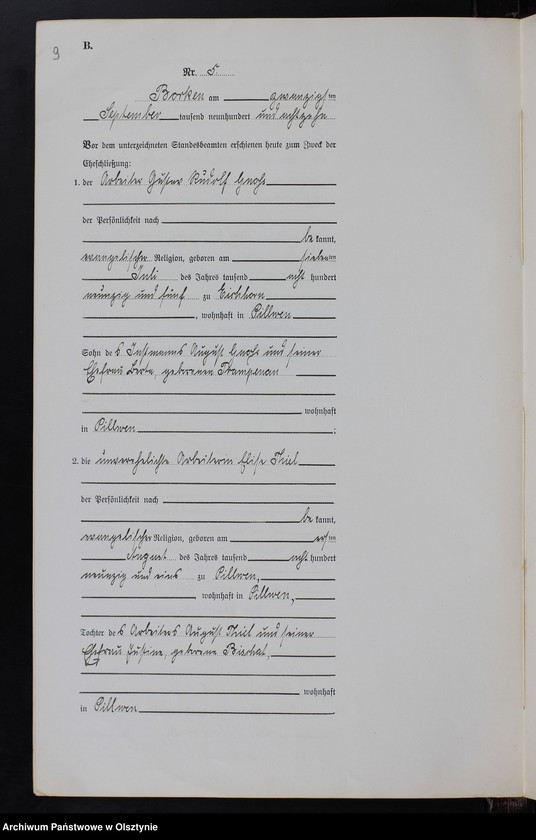 9
B.
Nr. 5.
Borken am zwanzigsten
September tausend neunhundert und achtzehn
Vor dem unterzeichneten Standesbeamten erschienen heute zum Zweck der
Eheschließung:
1. der Arbeiter Gustav Rudolf
der Persönlichkeit nach
be kannt,
evangelischer Religion, geboren am siebenten
Juli des Jahres tausend acht hundert
neunzig und fünf zu Eichhorn
, wohnhaft in Pillwen
Sohn des Instmanns August und seiner
Ehefrau Berta, geborenen
wohnhaft
in Pillwen ;
2. die unverehelichte Arbeiterin Elise Thiel
der Persönlichkeit nach
be kannt,
evangelischer Religion, geboren am ersten
August des Jahres tausend acht hundert
neunzig und eins zu Pillwen,
wohnhaft in Pillwen,
Tochter des Arbeiters August Thiel und seiner
Ehefrau Justine, geborene
wohnhaft
in Pillwen
Archiwum Państwowe w Olsztynie